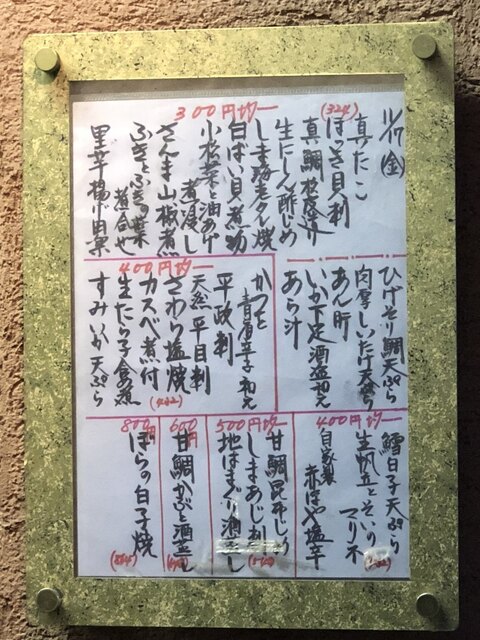 11/17(金)
300円均一
(324)
真たこ
ほっき貝刺
真鯛松皮造り
生にしん酢じめ
しま海老タレ焼
白ばい貝煮物
小松菜と油あげ
煮浸し
さんま山椒煮
ふきとふきの葉
煮合せ
里芋揚げ出
ひげそり鯛天ぷら
肉厚しいたけ天ぷら
あん肝
いか下足酒盗和え
あら汁
400円均一
かつを
青唐辛子和え
平政刺
天然平目刺
さわら塩焼
カスベ煮付
(432)
生たら子含煮
すみいか天ぷら
400円均一
鱈白子天ぷら
生帆立とそいの
マリネ
自家製
赤ほや塩辛
500円均一
甘鯛昆布じめ
しまあじ刺
(540)
地はまぐり酒蒸し
600円
甘鯛かぶと酒蒸し
800円
ぼらの白子焼
(864)